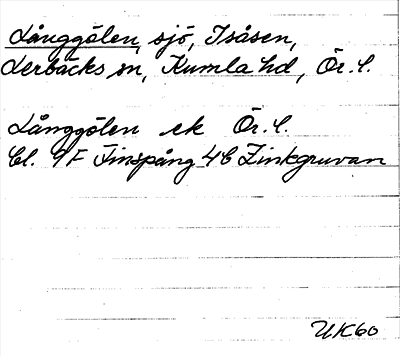 Långgölen, sjö, Isåsen,
Lerbäcks sn, Kumla hd, Ör. l.
Långgölen ek Ör. l.
Bl. 9F Finspång 4C Zinkgruvan
UK60